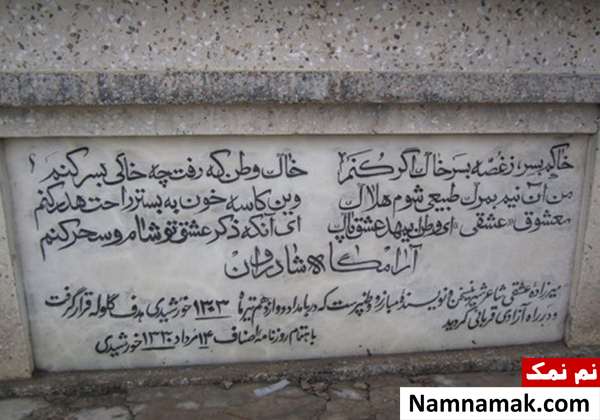 خاکم بسر، ز غصه بسر خاک اگر کنم خاک وطن که رفت چه خاکی بسر کنم؟
من آن نیم بمرگ طبیعی شوم هلاک وین کاسه خون به بستر راحت هدر کنم
معشوق «عشقی» ای وطن ای مهد عشق پاک ای آنکه ذکر عشق تو شام و سحر کنم
آرامگاه شادروان
میرزاده عشقی شاعر شیرین سخن و نویسنده مبارز و وطنپرست که در بامداد دوازدهم تیرماه ۱۳۰۳ خورشیدی هدف گلوله قرار گرفت
و در راه آزادی قربانی گردید باهتمام روزنامه اصناف ۱۴ مرداد ۱۳۳۰ خورشیدی
نم نمک
Namnamak.com